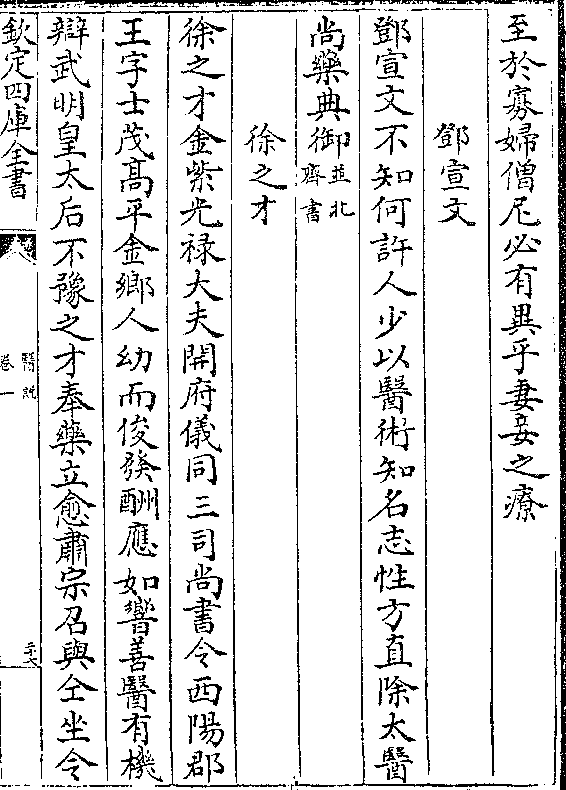 至於寡婦僧尼必有異乎妻妾之療
鄧宣文
鄧宣文不知何許人少以醫術知名志性方直除太醫
尚藥典御並北
齊書
徐之才
徐之才金紫光禄大夫開府儀同三司尚書令西陽郡
王字士茂髙平金鄉人幼而俊發酬應如響善醫有機
辯武明皇太后不豫之才奉藥立愈肅宗召與仝坐令
欽定四庫全書
醫說
卷一
二十六